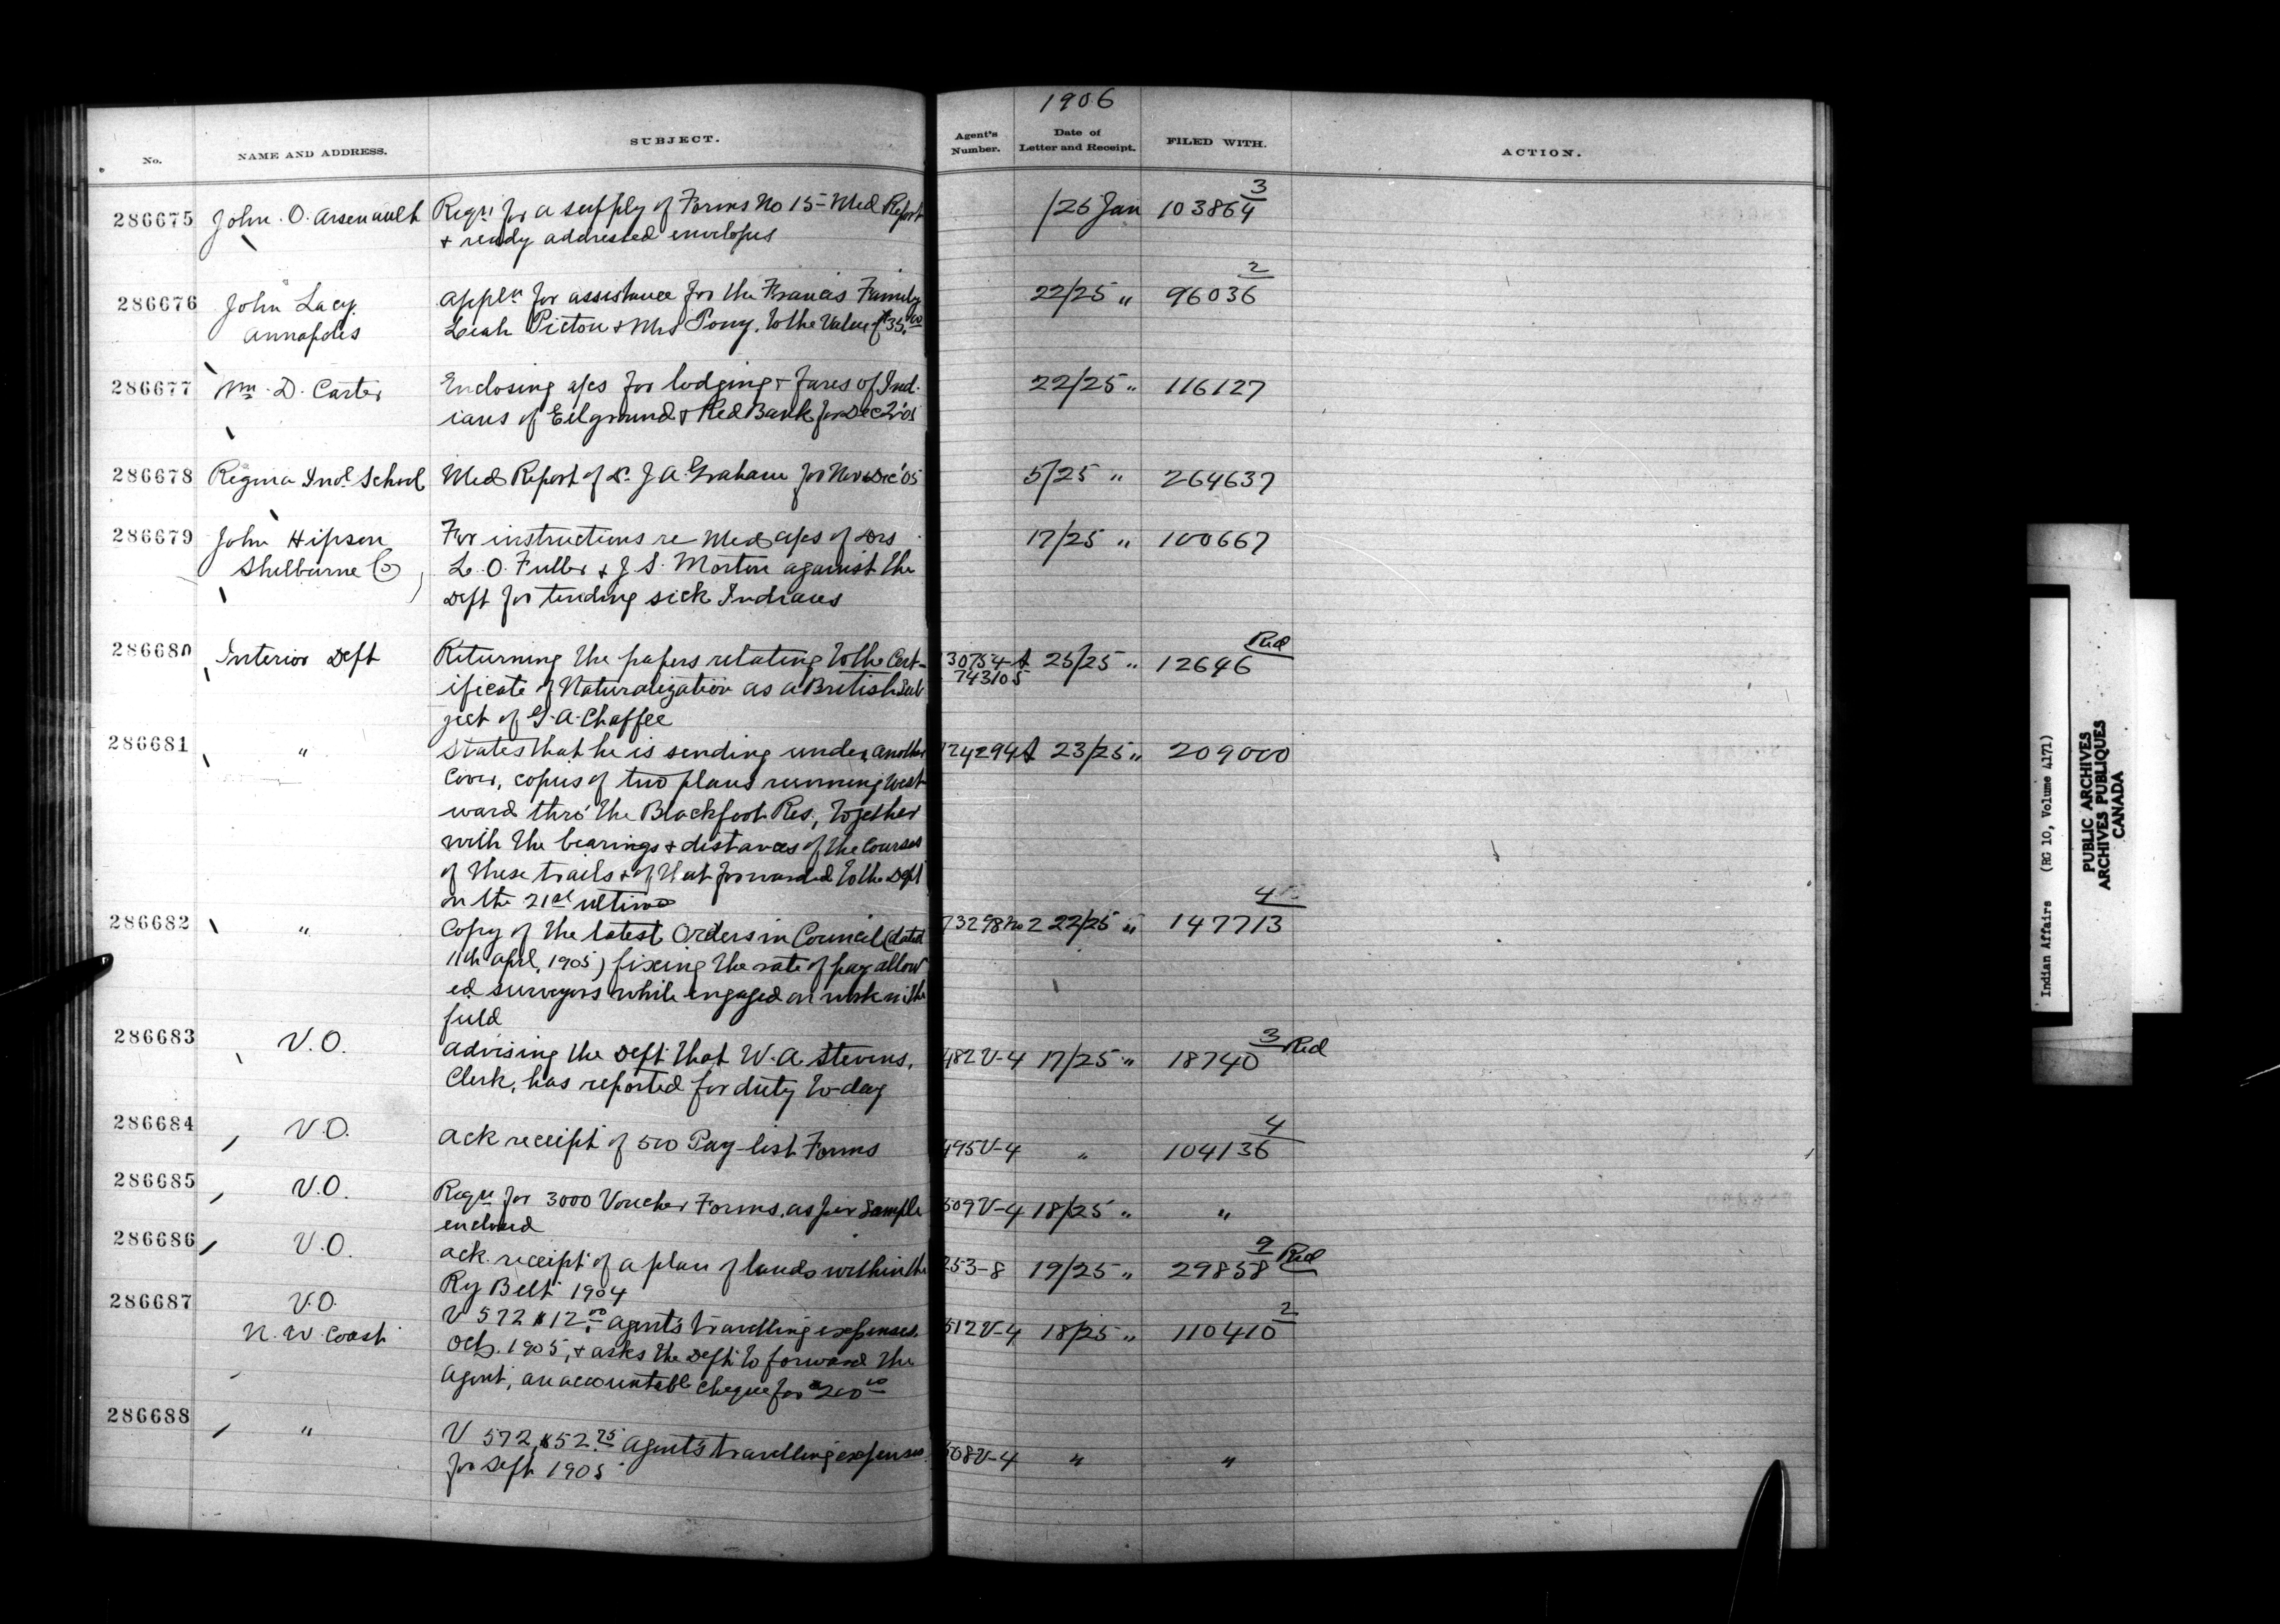 1906
No. NAME AND ADDRESS. SUBJECT. Agent's Number. Date of Letter and Receipt. FILED WITH. ACTION.
286675 John. O. Arsenault Reqn for a supply of Forms No 15 - Med Report /25 Jan 103864 3
& ready addressed envelopes
286676 John Lacy. Appln for assistance for the Francis Family 22/25 " 96036 2
Annapolis Leah Picton & Mrs Pony, to the Value of $35.00
286677 Wm. D. Carter Enclosing a/cs for lodging & fares of Ind- 22/25 " 116127
ians of Eelground & Red Bank for Dec
286678 Regina Indl School Med Report of Dr. J A. Graham for Nov & Dec '05 5/25 " 264637
286679 John Hipson For instructions re Med a/cs of Drs 17/25 " 100667
Shelburne Co L. O. Fuller & J. S. Morton against the
Dept for tending sick Indians
286680 Interior Dept Returning the papers relating to the Cert- 30754-A 25/25 " 12646 Red
ificate of Naturalization as a British Sub 743105
ject of G. A. Chaffee
286681 " States that he is sending under another 124294A 23/25 " 209000
Cover, copies of two plans running West
ward thro' the Blackfoot Res., together
with the bearings & distances of the Courses
of these trails & of that forwarded to the Dept
on the 21st ultimo
286682 " Copy of the latest Orders in Council (dated 73298 No 2 22/25 " 147713 4
11th April, 1905) fixing the rate of pay allow
ed surveyors while engaged on work in the
field
286683 V.O. Advising the Dept that W. A. Stevens, 482 V-4 17/25 " 18740 3 Red
Clerk, has reported for duty to-day
286684 V.O. Ack receipt of 500 Pay-list Forms 495V-4 " 104136 4
286685 V.O. Reqn for 3000 Voucher Forms, as per Sample 509V-4 18/25 " "
enclosed
286686 V.O. Ack. receipt of a plan of lands within the 253-8 19/25 " 29858 9 Red
Ry Belt 1904
286687 V.O. V 572 $12.00 Agent's travelling expenses. 512V-4 18/25 " 110410 2
N. W. Coast Oct. 1905, & asks the Dept to forward the
Agent, an accountable cheque for $200.00
286688 " V 572, $52.75 Agent's travelling expenses 508V-4 " "
for Sept 1905
Indian Affairs (RG 10, Volume 4171)
PUBLIC ARCHIVES
ARCHIVES PUBLIQUES
CANADA